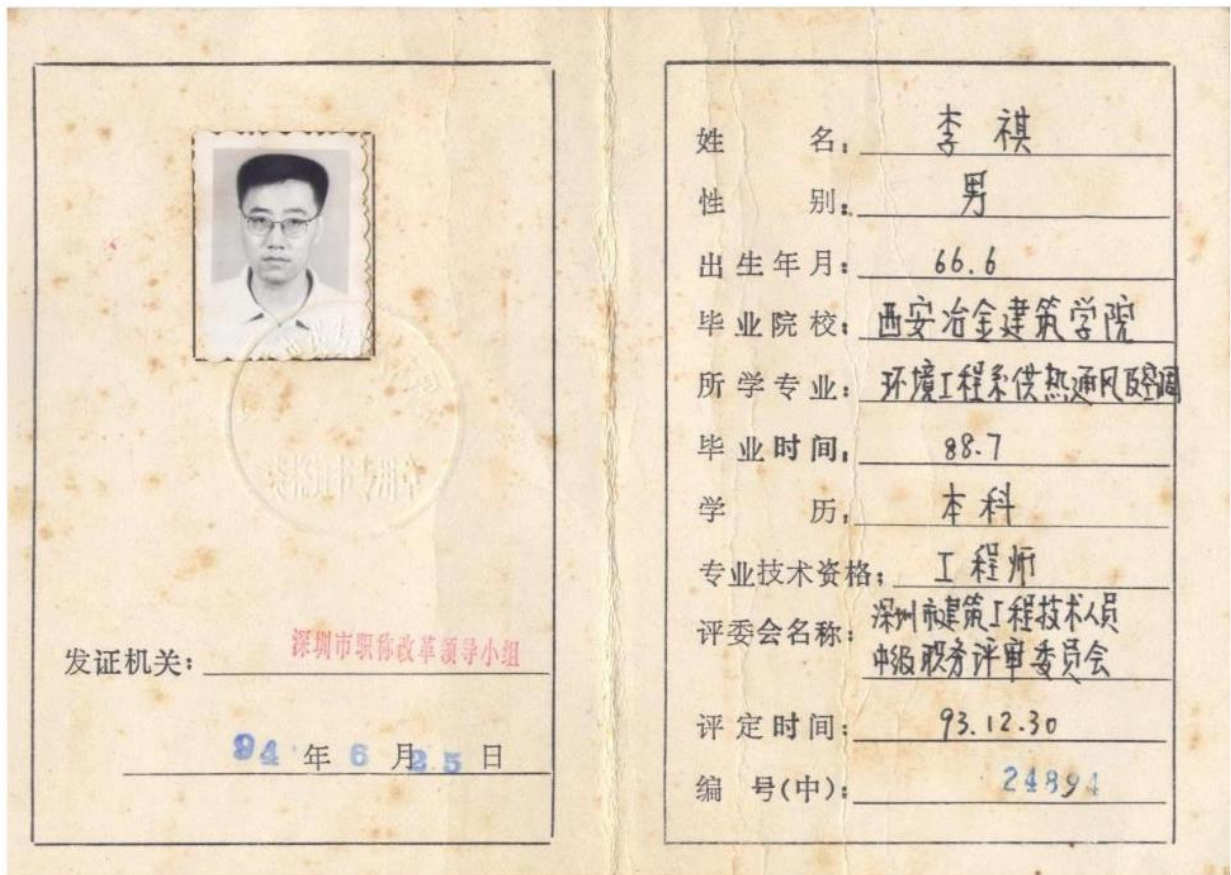 发证机关：深圳市职称改革领导小组
94年6月25日
姓名：李祺
性别：男
出生年月：66.6
毕业院校：西安冶金建筑学院
所学专业：环境工程系供热通风及空调
毕业时间：88.7
学历：本科
专业技术资格：工程师
评委会名称：深圳市建筑工程技术人员
中级职务评审委员会
评定时间：93.12.30
编号(中)：24894